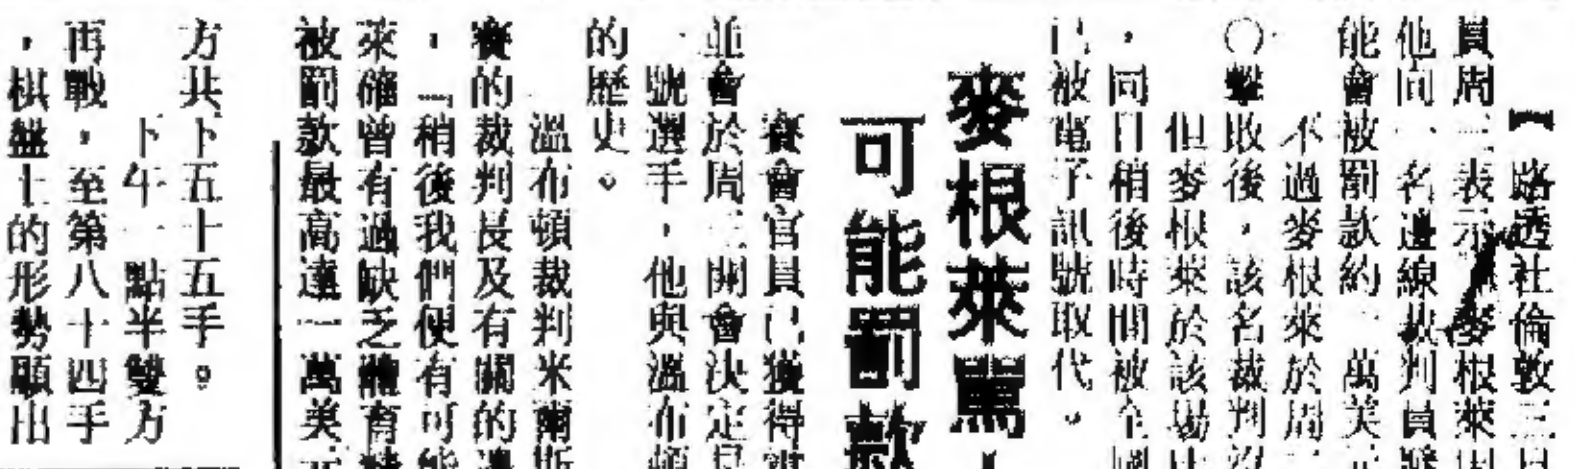 【路透社倫敦三日
員周三表示,麥根萊因
他向一名邊線裁判員
能會被罰款約一萬美元
不過麥根萊於周
〇擊敗後,該名裁判沒
但麥根萊於該場比
,同日稍後時間被全國
已被電子訊號取代。
麥根萊罵
可能罰款
賽會官員已獲得
並會於周三開會決定是
一號選手,他與溫布頓
的歷史。
溫布頓裁判米爾斯
賽的裁判長及有關的
,「稍後我們便有可能
來確曾有過缺乏體育
被罰款最高達一萬美元
方共下五十五手。
下午一點半雙方
再戰,至第八十四手
,棋盤上的形勢顯出